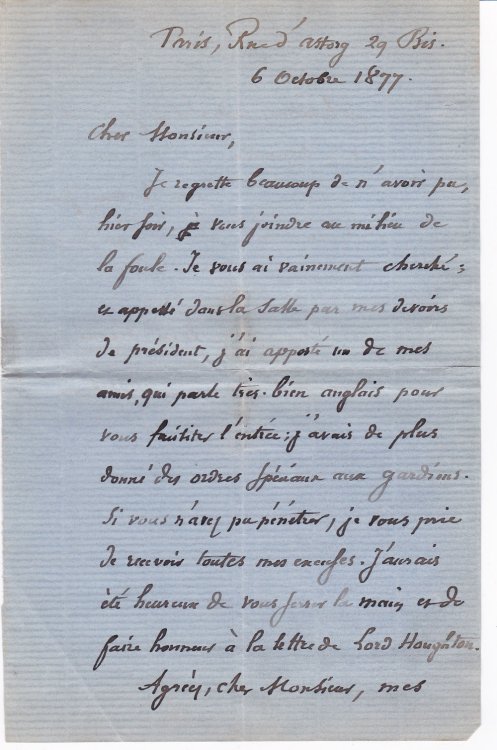 Paris, Rue d'astorg 29 Bis.
6 Octobre 1877.
Cher Monsieur,
Je regrette beaucoup de n'avoir pu,
hier soir, vous joindre au milieu de
la foule. Je vous ai vainement cherché;
et appelé dans la Salle par mes devoirs
de président, j'ai aposté un de mes
amis, qui parle très-bien anglais pour
vous faciliter l'entrée; j'avais de plus
donné des ordres spéciaux aux gardiens.
Si vous n'avez pu pénétrer, je vous prie
de recevoir toutes mes excuses. J'aurais
été heureux de vous serrer la main et de
faire honneur à la lettre de Lord Houghton.
Agréez, cher Monsieur, mes